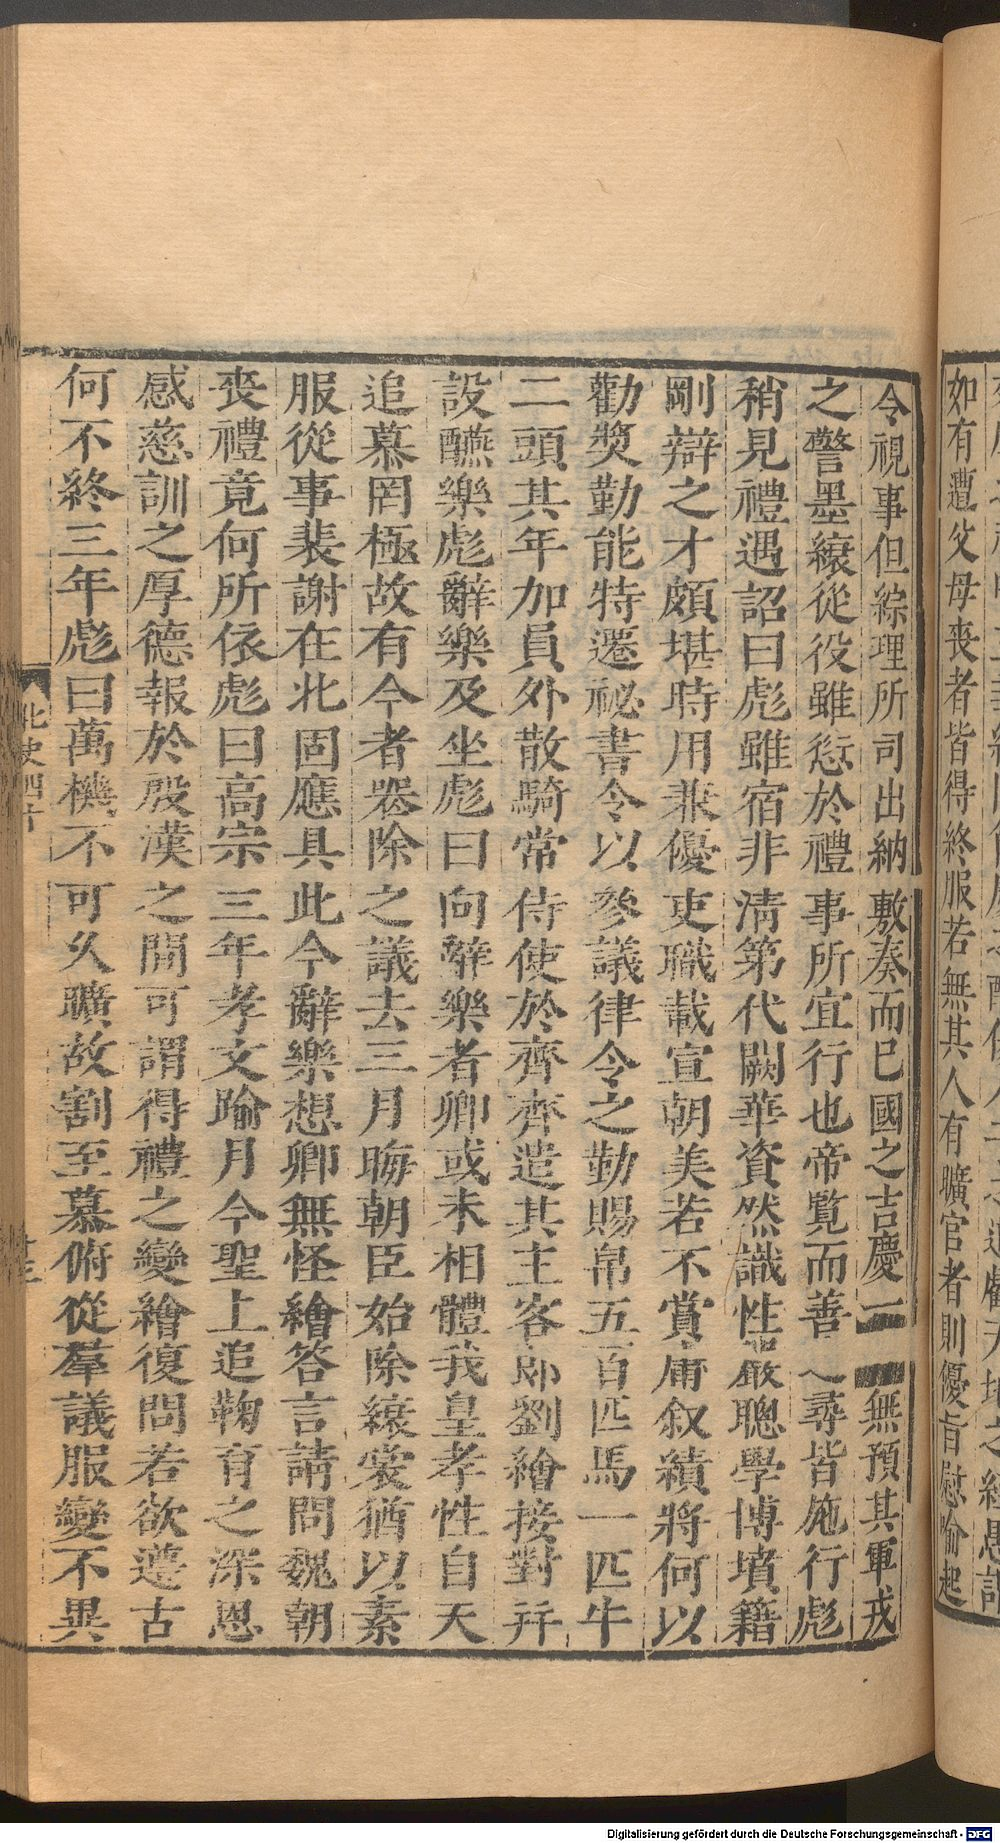 如有遭父母喪者皆得終服若無其人有曠官者則優旨慰喻起
令視事但綜理所司出納敷奏而已國之吉慶一 無預其軍戎
之警墨縗從役雖愆於禮事所宜行也帝覽而善之尋皆施行彪
稍見禮遇詔曰彪雖宿非清第代闕華資然識性嚴聰學博墳籍
剛辯之才頗堪時用兼優吏職載宣朝美若不賞庸叙績將何以
勸奬勤能特遷祕書令以參議律令之勤賜帛五百匹馬一匹牛
二頭其年加員外散騎常侍使於齊齊遣其主客郎劉繪接對并
設醼樂彪辭樂及坐彪曰向辭樂者卿或未相體我皇孝性自天
追慕罔極故有今者喪除之議去三月晦朝臣始除縗裳猶以素
服從事裴謝在北固應具此今辭樂想卿無怪繪答言請問魏朝
喪禮竟何所依彪曰高宗三年孝文踰月今聖上追鞠育之深恩
感慈訓之厚德報於殷漢之間可謂得禮之變繪復問若欲遵古
何不終三年彪曰萬機不可久曠故割至慕俯從羣議服變不異
北史四十
Digitalisierung gefördert durch die Deutsche Forschungsgemeinschaft - DFG